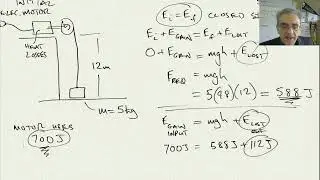 INITIAL
ELEC. MOTOR
HEAT
LOSSES
12m
m=5kg
MOTOR USES
700J
Ei = Ef CLOSED S
Ei + EGAIN = Ef + ELOST
0 + EGAIN = mgh + ELOST
EREQ = mgh
= 5(9.8)(12) = 588J
EGAIN = mgh + ELOST
INPUT
700J = 588J + 112J